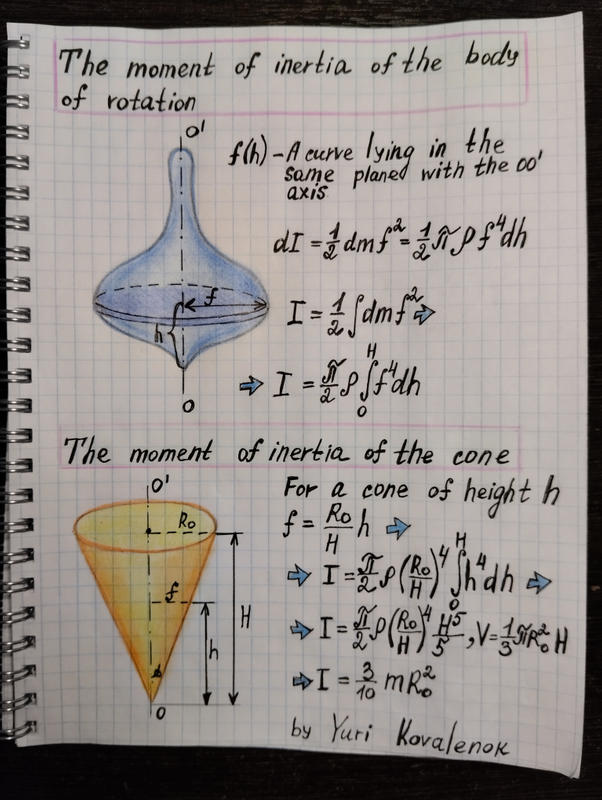 The moment of inertia of the body
of rotation
O'
f(h) - A curve lying in the
same planed with the oo'
axis
f
h
O
dI = 1/2 dmf² = 1/2 πρf⁴dh
I = 1/2 ∫dmf² ⇨
⇨ I = π/2 ρ∫₀ᴴ f⁴dh
The moment of inertia of the cone
O'
R₀
f
H
h
O
For a cone of height h
f = R₀/H h ⇨
⇨ I = π/2 ρ(R₀/H)⁴ ∫₀ᴴ h⁴dh ⇨
⇨ I = π/2 ρ(R₀/H)⁴ H⁵/5, V = 1/3 πR₀²H
⇨ I = 3/10 mR₀²
by Yuri Kovalenok